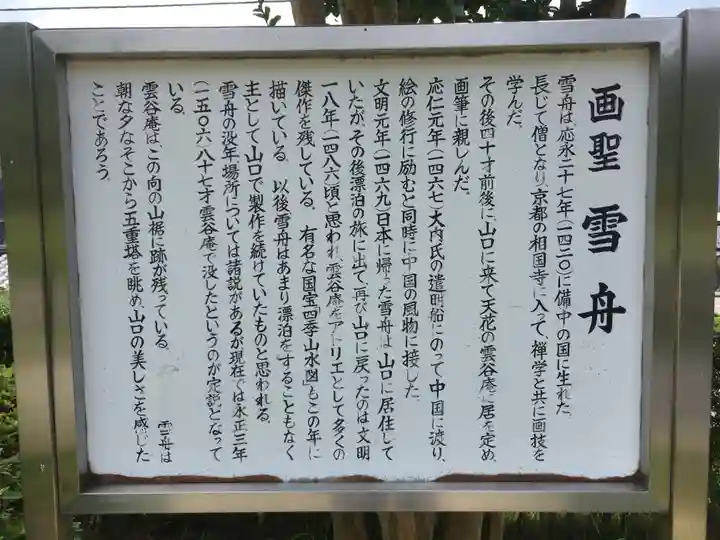 画聖 雪舟
雪舟は、応永二十七年(一四二〇)に備中の国に生れた。
長じて僧となり、京都の相国寺に入って、禅学と共に画技を
学んだ。
その後四十才前後に、山口に来て天花の雲谷庵に居を定め、
画筆に親しんだ。
応仁元年(一四六七)大内氏の遣明船にのって、中国に渡り、
絵の修行に励むと同時に中国の風物に接した。
文明元年(一四六九)日本に帰った雪舟は、山口に居住して
いたが、その後漂泊の旅に出て、再び山口に戻ったのは文明
一八年(一四八六)頃と思われ、雲谷庵をアトリエとして多くの
傑作を残している。 有名な国宝「四季山水図」もこの年に
描いている。 以後雪舟はあまり漂泊をすることもなく
主として山口で製作を続けていたものと思われる。
雪舟の没年、場所については諸説があるが現在では永正三年
(一五〇六)八十七才雲谷庵で没したというのが定説となって
いる。
雲谷庵はこの向の山裾に跡が残っている。 雪舟は
朝な夕なそこから五重塔を眺め、山口の美しさを感じた
ことであろう。